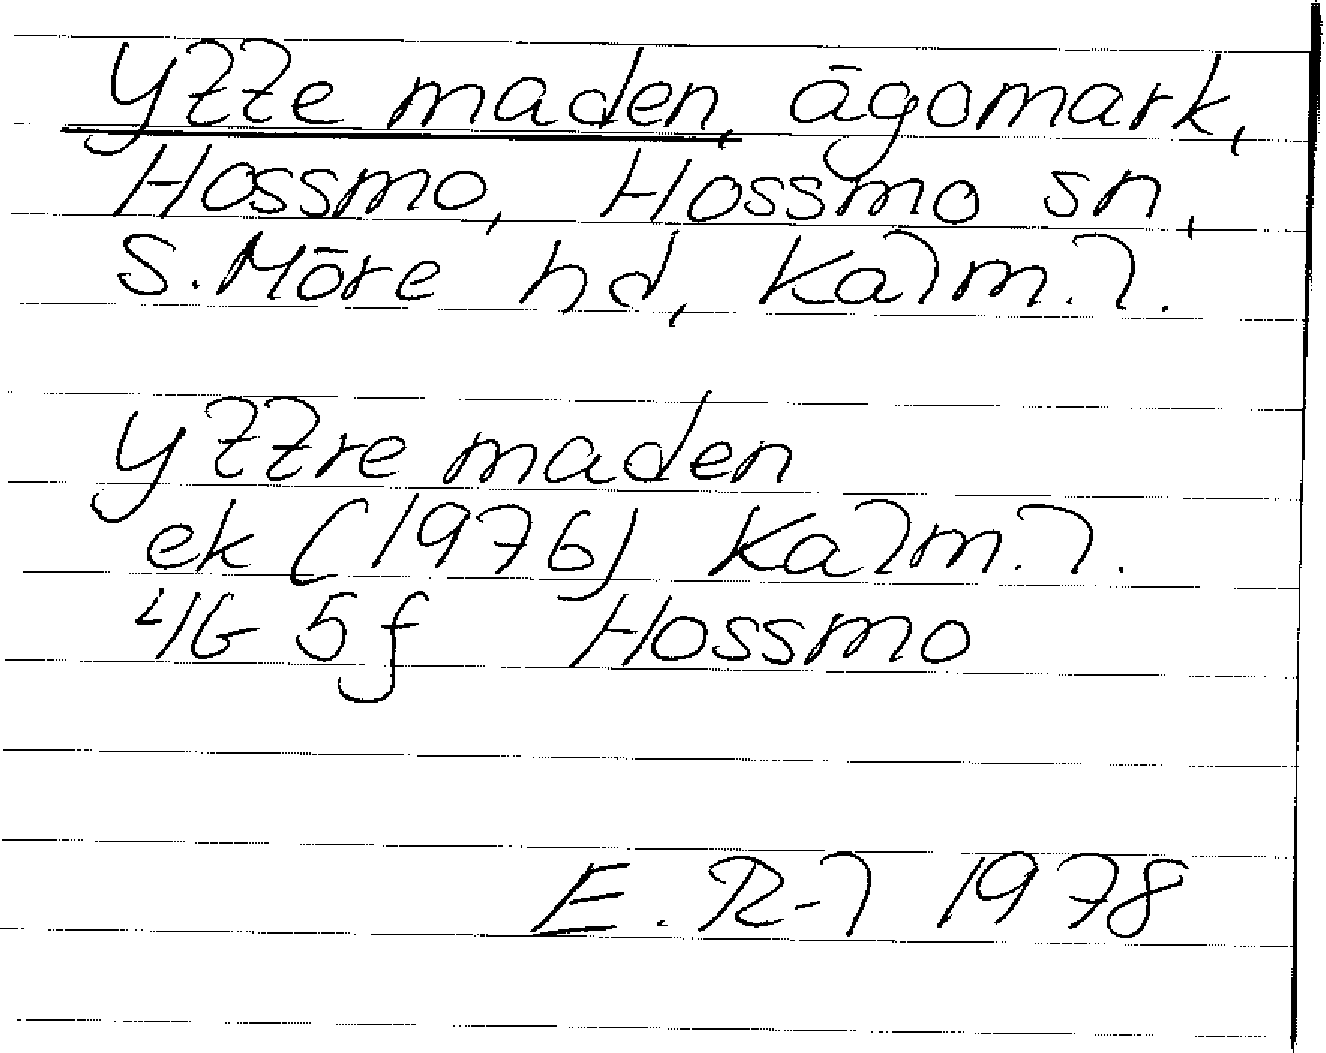 Ytte maden, ägomark,
Hossmo, Hossmo sn,
S. Möre hd, Kalm. l.
Yttre maden
ek (1976) Kalm. l.
4G 5f Hossmo
E. R-l 1978